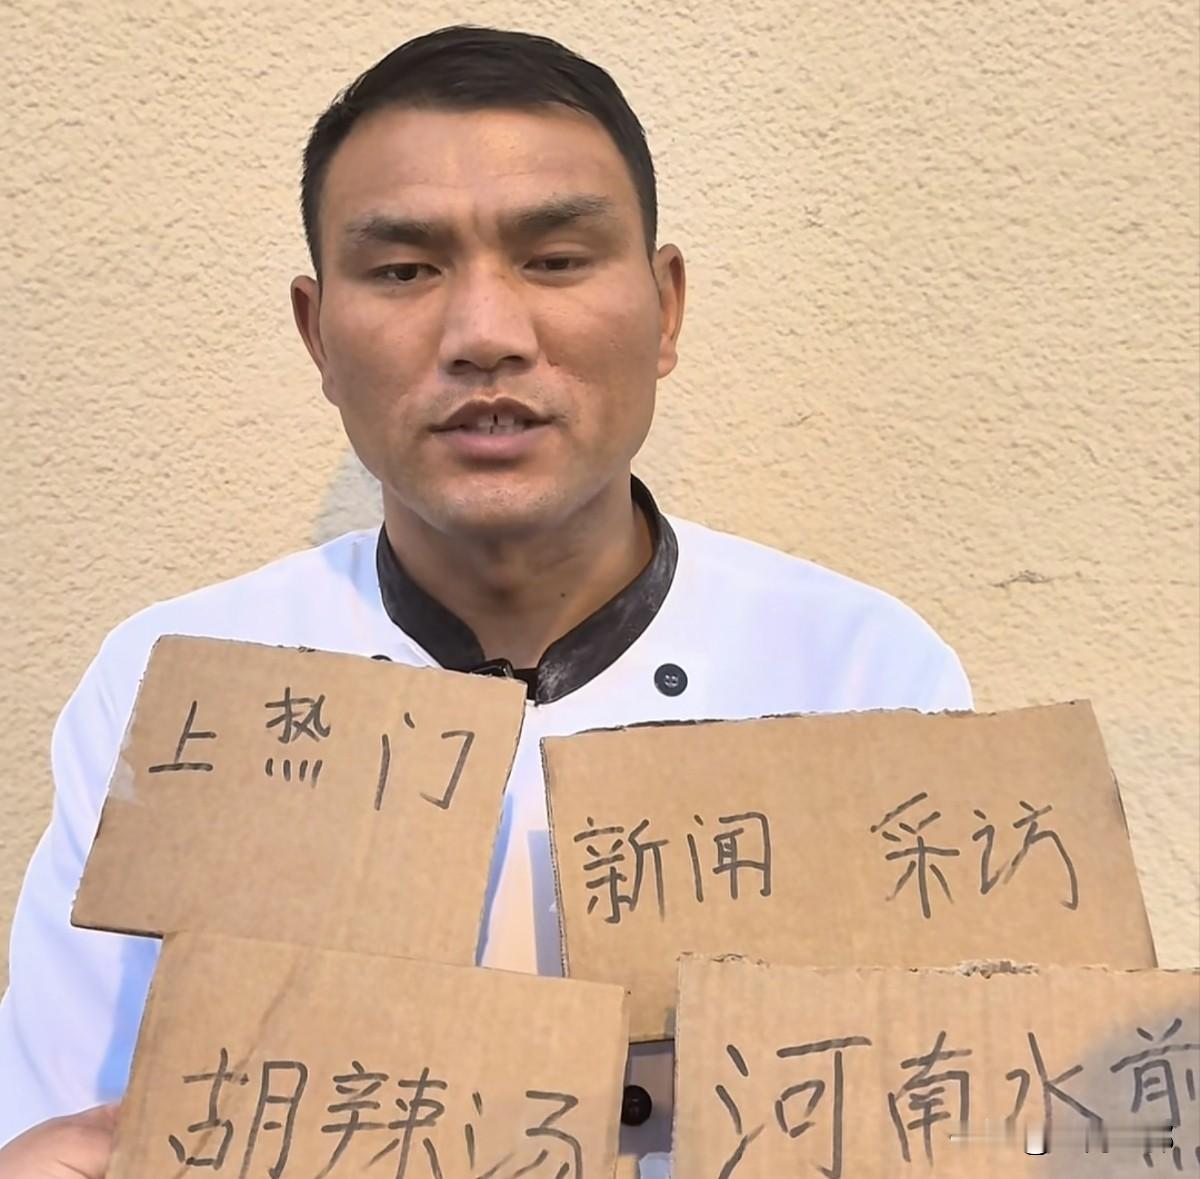 上热门
新闻 采访
胡辣汤
河南水煎